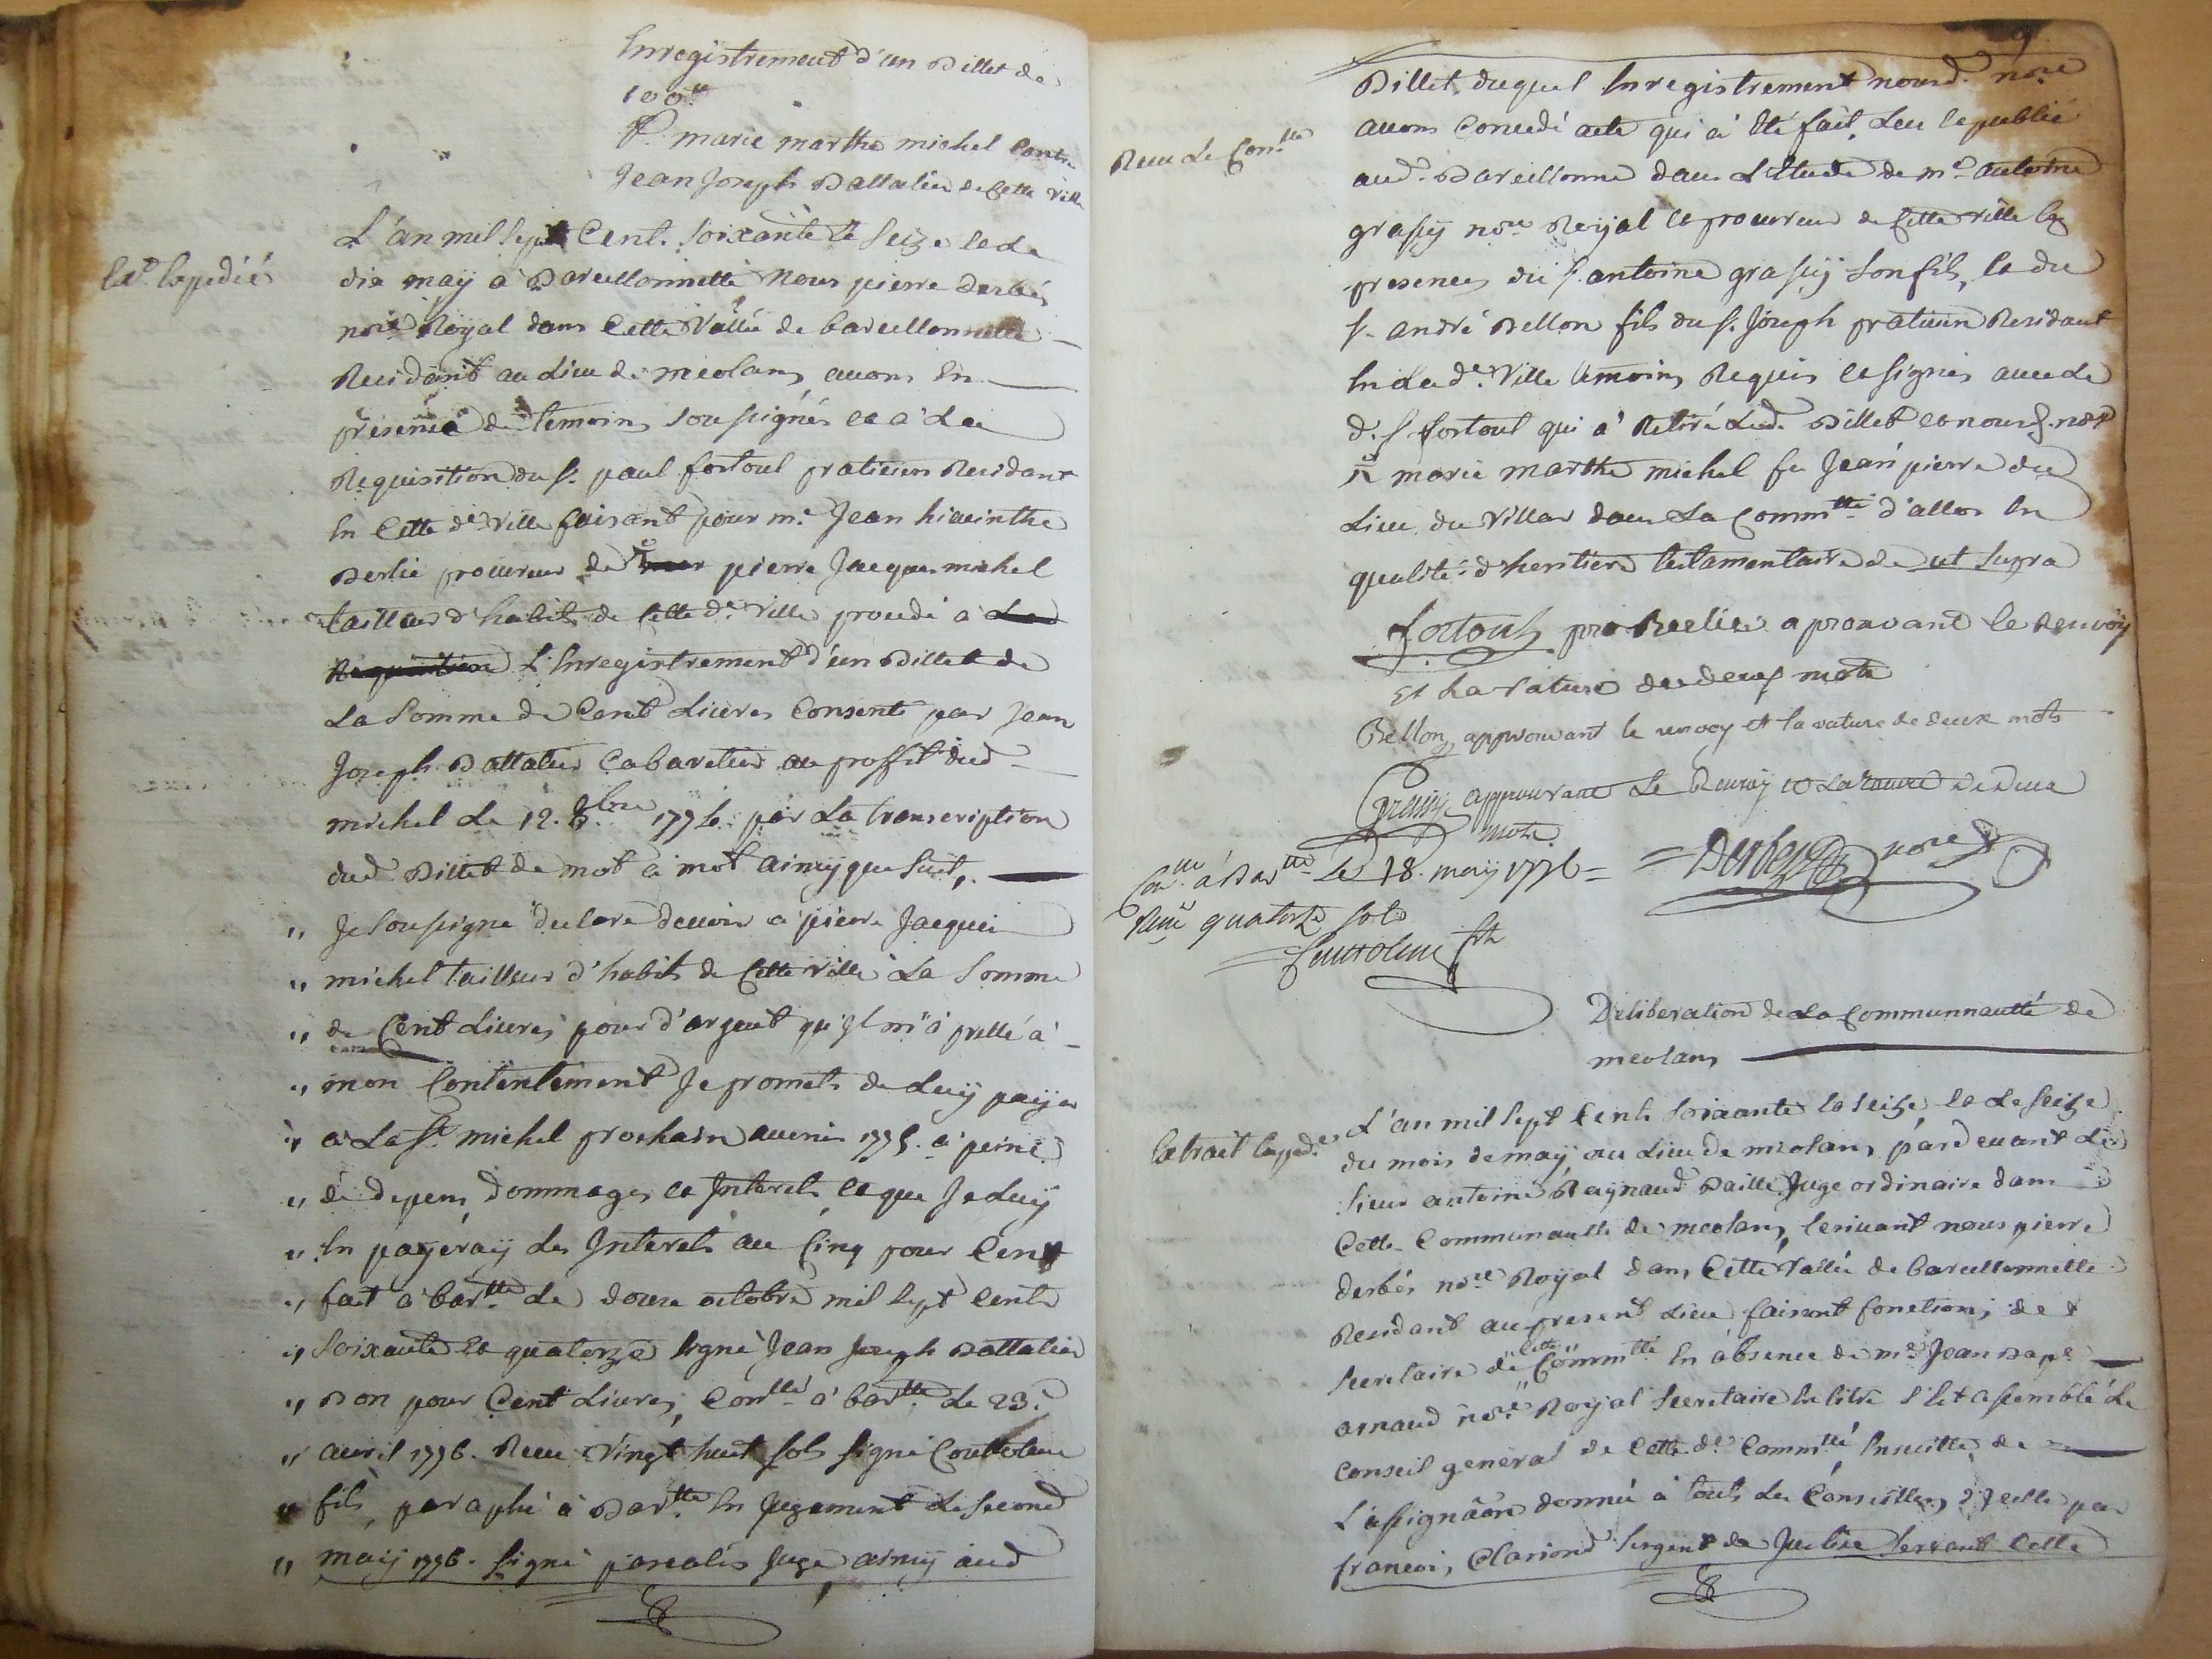 Enregistrement d'un Billet de
100ᵗᵗ
P. marie marthe michel Contre
Jean Joseph Battalier de Cette Ville
L'an mil Sept Cent Soixante et Seize et Le
dix may à Barcellonnette Nous pierre Derbés
noʳᵉ Royal dans Cette Vallée de barcellonnette
Residant au Lieu de meolans avons En
presence de temoins Sousignés et a La
Requisition du Sʳ paul fortoul praticien Residant
En Cette dᵉ Ville faisant pour mᵉ Jean hiacinthe
Berlie procureur de pierre Jacques michel
tailleur d'habits de Cette dᵉ Ville procedé a La
Requisition L'Enregistrement d'un Billet de
La Somme de Cent Livres Consenti par Jean
Joseph Battalier Cabaretier au proffit dud
michel Le 12. 8bre 1774 par La transcription
dud Billet de mot à mot ainsy que Suit,
" Je Sousigné declare devoir a pierre Jacques
" michel tailleur d'habits de Cette Ville La Somme
" de Cent Livres pour d'argent qu'Jl m'a pretté à
" mon Contentement Je promets de Luy payer
" à La Sᵗ michel prochain avenir 1775. a peine
" de depens dommages et Jnterets et que Je Luy
" En payeray Les Jnterets au Cinq pour Cent
" fait à barᵗᵗᵉ Le douze octobre mil Sept Cents
" Soixante et quatorze Signé Jean Joseph Battalier
" Bon pour Cent Livres, Conᵗˡˡᵉ à barᵗᵗᵉ Le 23.
" avril 1776. Receu Vingt huit Sols Signé Coutolenc
" fils, paraphé à Barᵗᵗᵉ En Jugement Le Second
" may 1776. Signé pascalis Juge ainsy aud
Exᵗ Expedié
Billet, duquel Enregistrement nousd. noʳᵉ
avons Concedé acte qui a Eté fait, Leu et publié
aud. Barcellonne dans L'Etude de mᵉ antoine
grassy noʳᵉ Royal et procureur de Cette Ville En
presences du Sʳ antoine grassy Son fils, et du
Sʳ andré Bellon fils du Sʳ Joseph praticien Residant
En Lad.ᵉ Ville temoins Requis et Signés avec Le
d. Sʳ fortoul qui a Retiré Led. Billet et nousd. noʳᵉ
marie marthe michel fu Jean pierre du
Lieu du Villar dans La Commᵗᵗᵉ d'allos En
qualité d'heritiere testamentaire de ut Supra
Receu Le Conᵗˡˡᵉ
fortoul pro Berlie aprouvant le Renvoy
Et La rature de deux mots
Bellon approuvant le renvoy et la rature de deux mots
Grassy approuvant Le Renvoy et La rature de deux
mots
Conᵗˡˡᵉ à Barᵗᵗᵉ Le 18. may 1776 = = Derbez noʳᵉ
Receu quatorze Sols
Couttolenc fils
Deliberation de La Communnautté de
meolans
Extrait Expedᵉ
L'an mil Sept Cents Soixante et Seize et Le Seize
du mois de may au Lieu de meolans, pardevant Le
Sieur antoine Raynaud Baille Juge ordinaire dans
Cette Communautté de meolans, Ecrivant nous pierre
derbés noʳᵉ Royal dans Cette Vallée de barcellonnette
Residant au present Lieu faisant fonctions de
Secretaire de Cette Commᵗᵗᵉ En absence de mᵉ Jean Bapᵉ
arnaud noʳᵉ Royal Secretaire En titre S'Est assemblé Le
Conseil general de Cette dᵉ Commᵗᵗᵉ Ensuitte de
L'assignâon donnée à touts Les Conseillers d'Jcelle par
francois Clariond Sergent de Justice Servant Cette